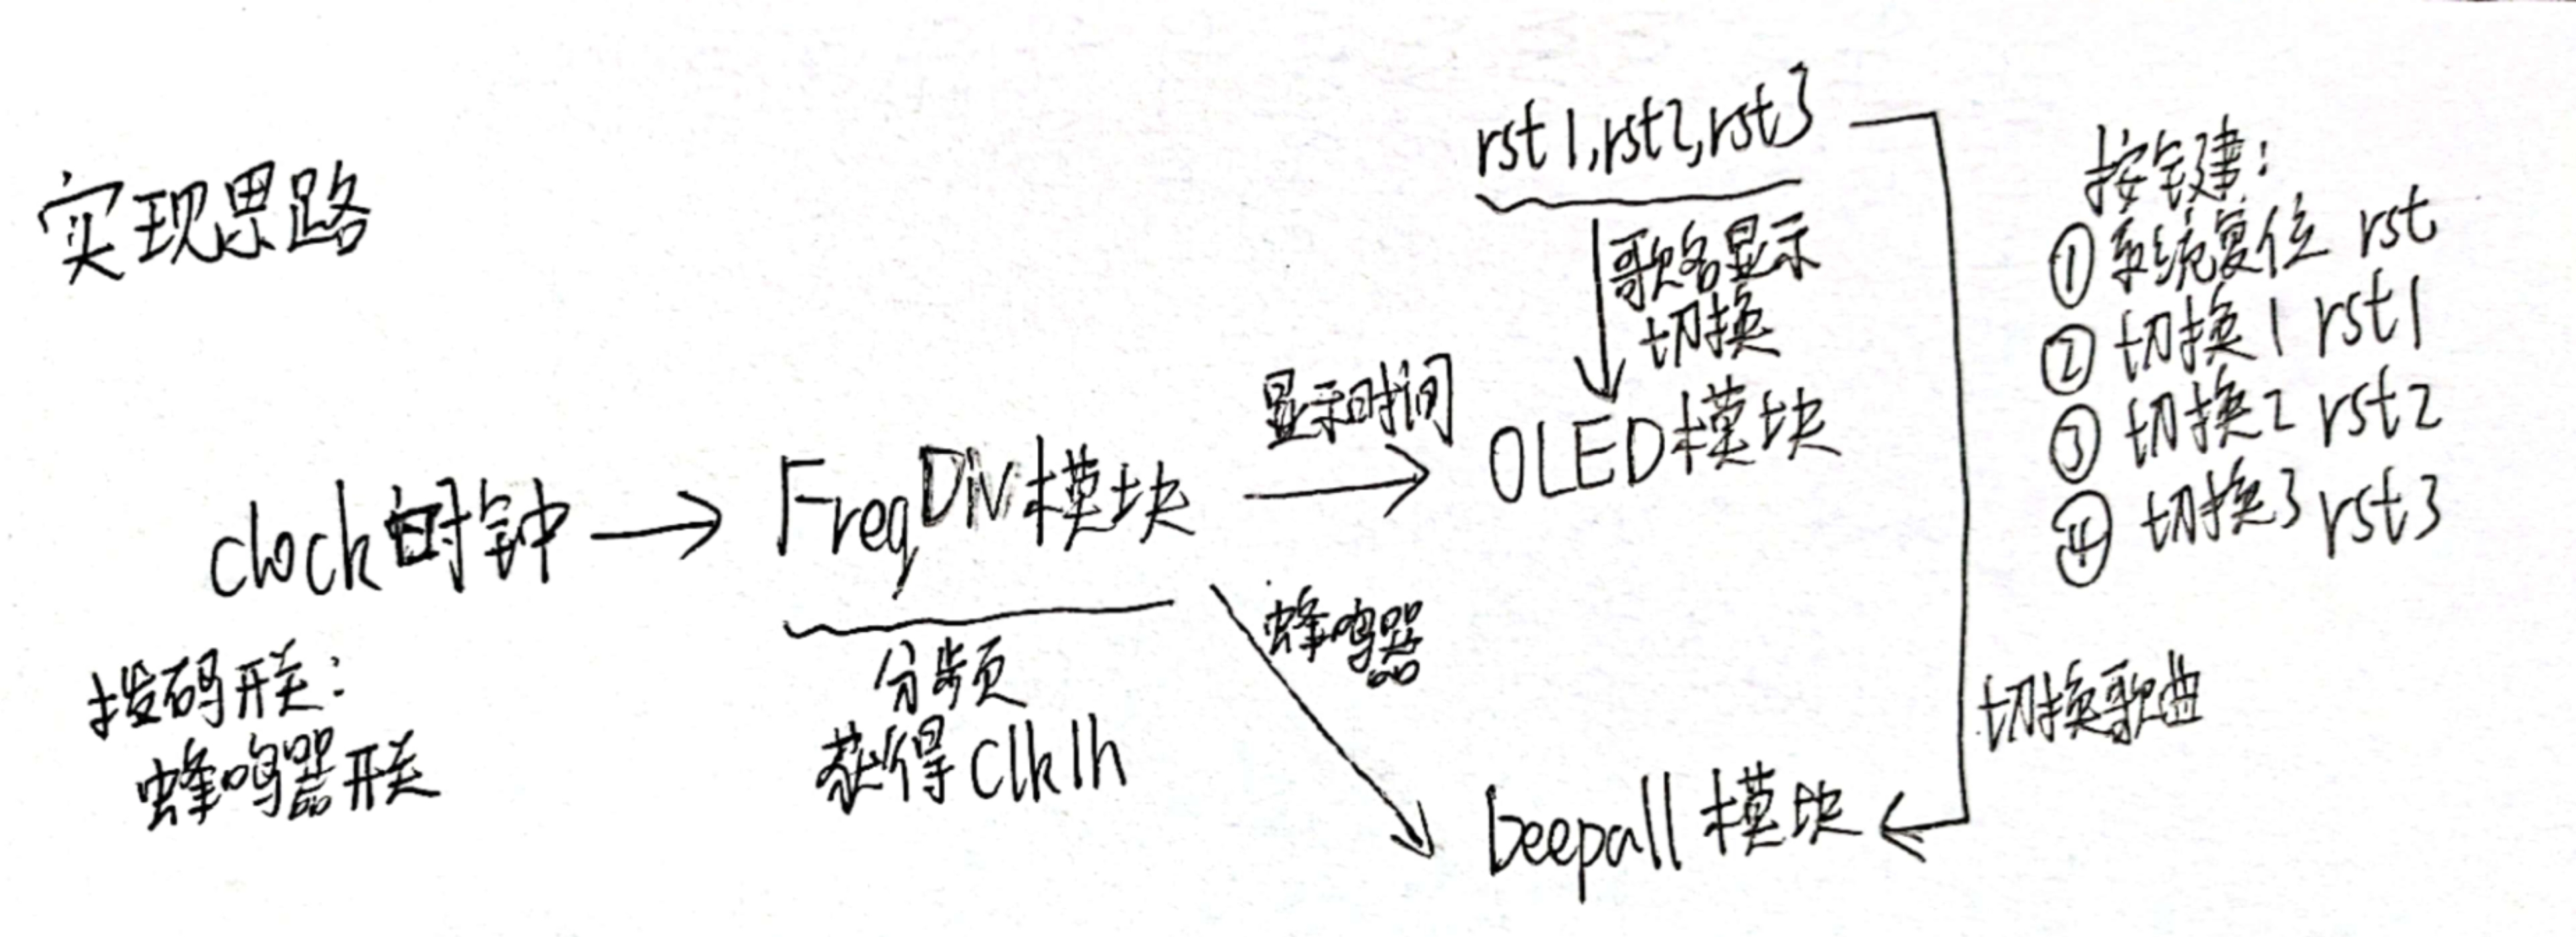 实现思路
rst1,rst2,rst3
歌名显示
切换
显示时间
clock时钟
FreqDiv模块
OLED模块
分频
获得clk1h
蜂鸣器
beepall模块
切换歌曲
拨码开关:
蜂鸣器开关
按键:
① 系统复位 rst
② 切换1 rst1
③ 切换2 rst2
④ 切换3 rst3